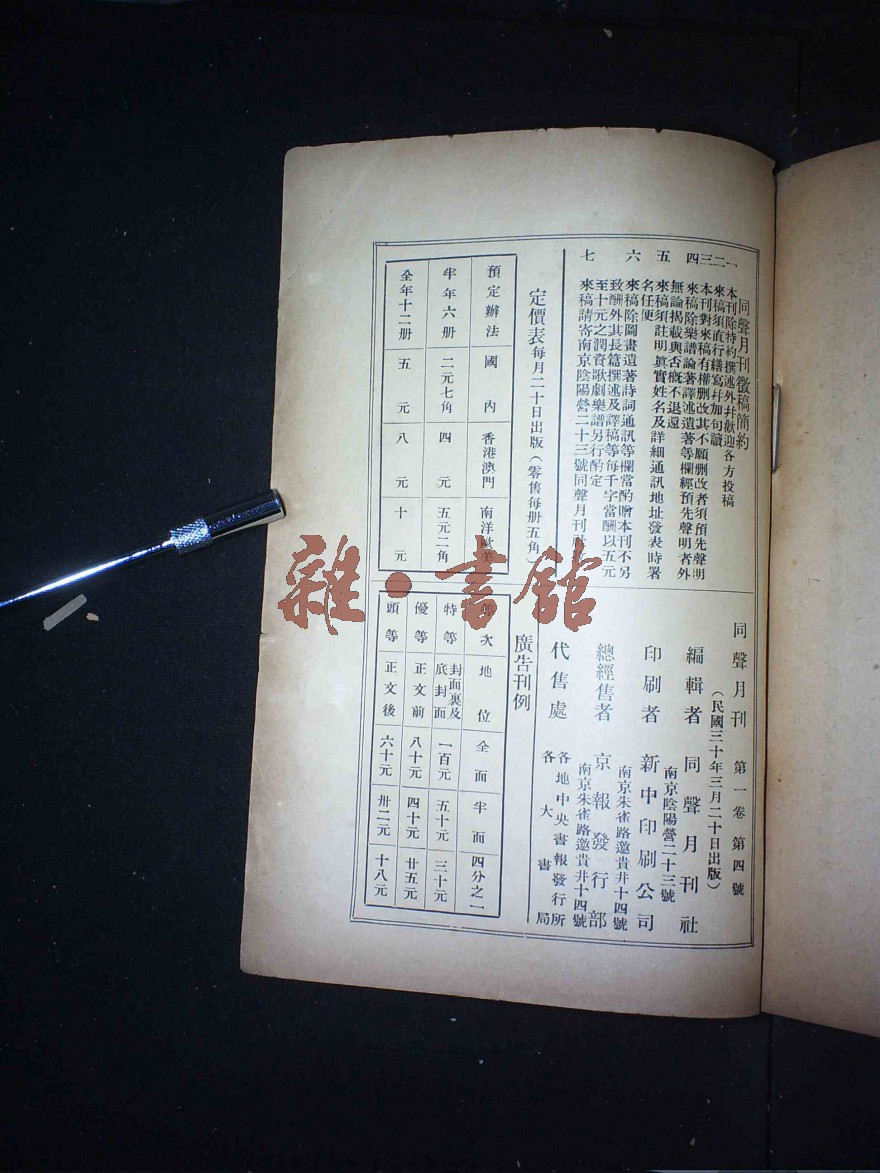 同聲月刊徵稿簡約
一 本刊除特約撰述外幷歡迎各方投稿
二 來稿須直行繕寫幷加句讀
三 本刊對來稿有權删改其不願删改者須預先聲明
四 來稿除樂譜論著譯述遺著等欄經預先聲明者外
無論揭載與否概不退還
五 來稿須註明眞實姓名及詳細通訊地址發表時署
名任便
六 來稿除圖畫遺著詩詞通訊等欄當酌贈本刊不另
致酬外其長篇撰述及譯稿等每千字當酬以五元
至十元之潤資歌劇樂譜另行酌定
七 來稿請寄南京陰陽營二十三號同聲月刊社
定價表 每月二十日出版(零售每册五角)
預定辦法 國內 香港澳門 南洋歐美
半年六册 二元七角 四元 五元二角
全年十二册 五元 八元 十元
同聲月刊 第一卷 第四號
(民國三十年三月二十日出版)
編輯者 同聲月刊社
南京陰陽營二十三號
印刷者 新中印刷公司
南京朱雀路邀貴井十四號
總經售者 京報發行部
南京朱雀路邀貴井十四號
代售處 各地中央書報發行所
各大書局
廣告刊例
等次 地位 全面 半面 四分之一
特等 封面裏及底封面 一百元 五十元 三十元
優等 正文前 八十元 四十元 廿五元
頭等 正文後 六十元 卅二元 十八元
雜·書館